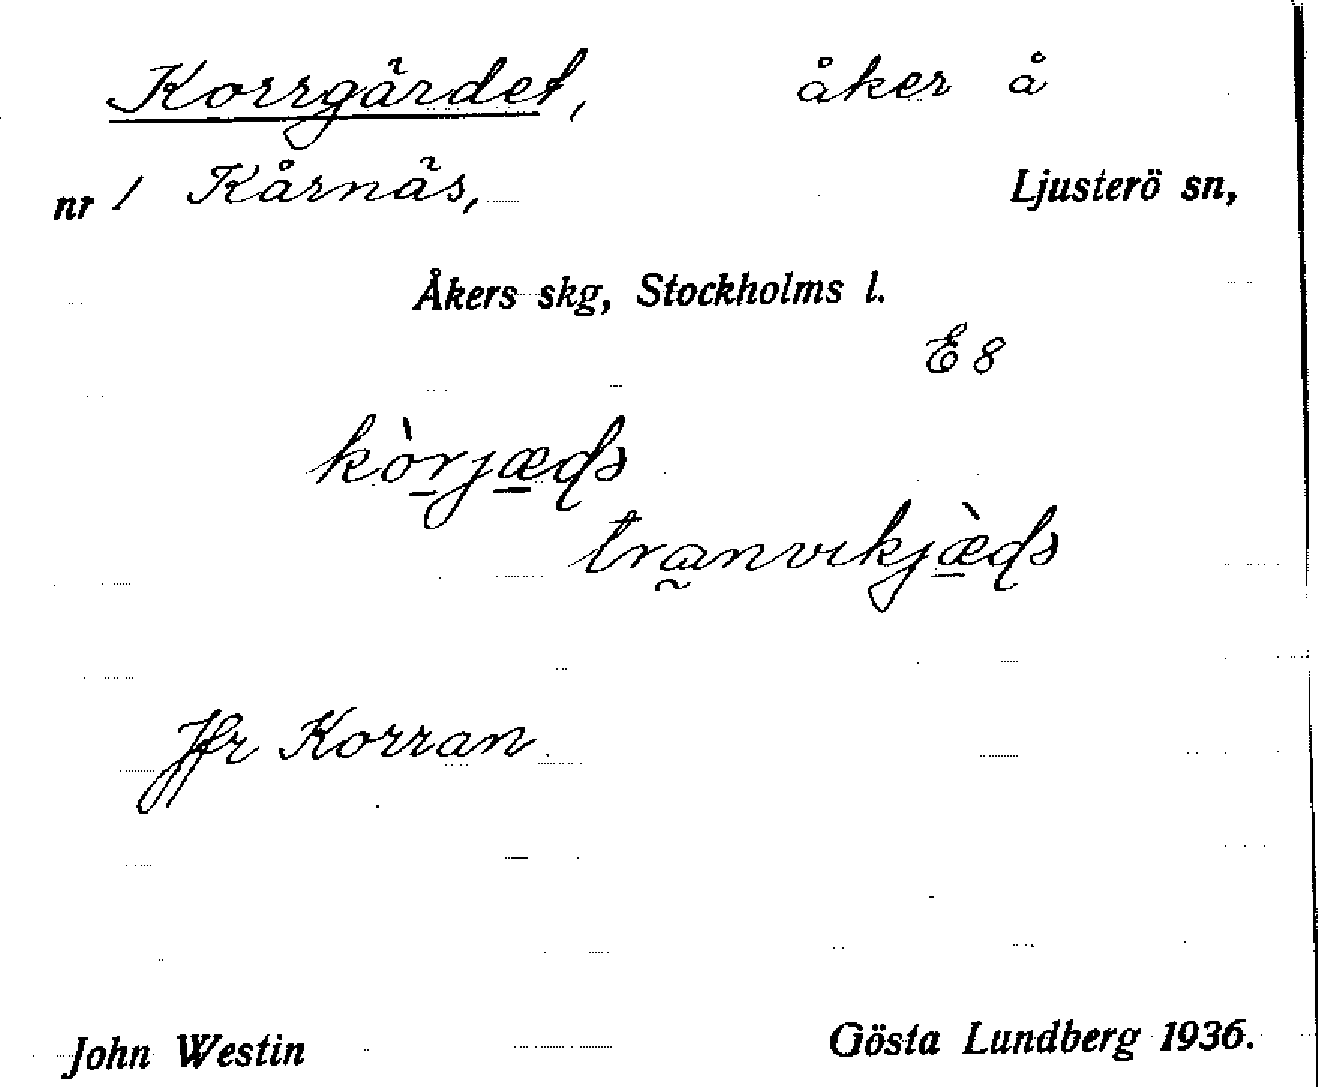 Korrgärdet, åker å
nr 1 Kårnäs, Ljusterö sn,
Åkers skg, Stockholms l.
E 8
kòrjæḍs
tra̰nvikjæ̀ḍs
Jfr Korran
John Westin Gösta Lundberg 1936.